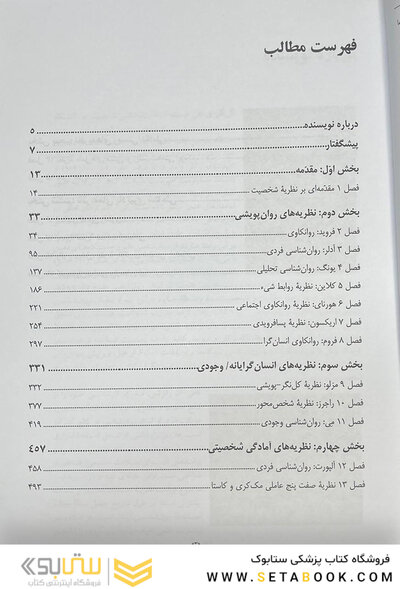 فهرست مطالب
درباره نویسنده ... ۵
پیشگفتار ... ۷
بخش اوّل: مقدّمه ... ۱۳
فصل ۱ مقدّمه‌ای بر نظریهٔ شخصیت ... ۱۴
بخش دوم: نظریه‌های روان‌پویشی ... ۳۳
فصل ۲ فروید: روانکاوی ... ۳۴
فصل ۳ آدلر: روان‌شناسی فردی ... ۹۵
فصل ۴ یونگ: روان‌شناسی تحلیلی ... ۱۳۷
فصل ۵ کلاین: نظریهٔ روابط شیء ... ۱۸۶
فصل ۶ هورنای: نظریهٔ روانکاوی اجتماعی ... ۲۲۱
فصل ۷ اریکسون: نظریهٔ پسافرویدی ... ۲۵۴
فصل ۸ فروم: روانکاوی انسان‌گرا ... ۲۹۷
بخش سوم: نظریه‌های انسان‌گرایانه/ وجودی ... ۳۳۱
فصل ۹ مزلو: نظریهٔ کل‌نگر–پویشی ... ۳۳۲
فصل ۱۰ راجرز: نظریهٔ شخص‌محور ... ۳۷۷
فصل ۱۱ مِی: روان‌شناسی وجودی ... ۴۱۹
بخش چهارم: نظریه‌های آمادگی شخصیتی ... ۴۵۷
فصل ۱۲ آلپورت: روان‌شناسی فردی ... ۴۵۸
فصل ۱۳ نظریهٔ صفت پنج عاملی مک‌کری و کاستا ... ۴۹۳
فروشگاه کتاب پزشکی ستابوک
WWW.SETABOOK.COM
ستابوک
فروشگاه اینترنتی کتاب